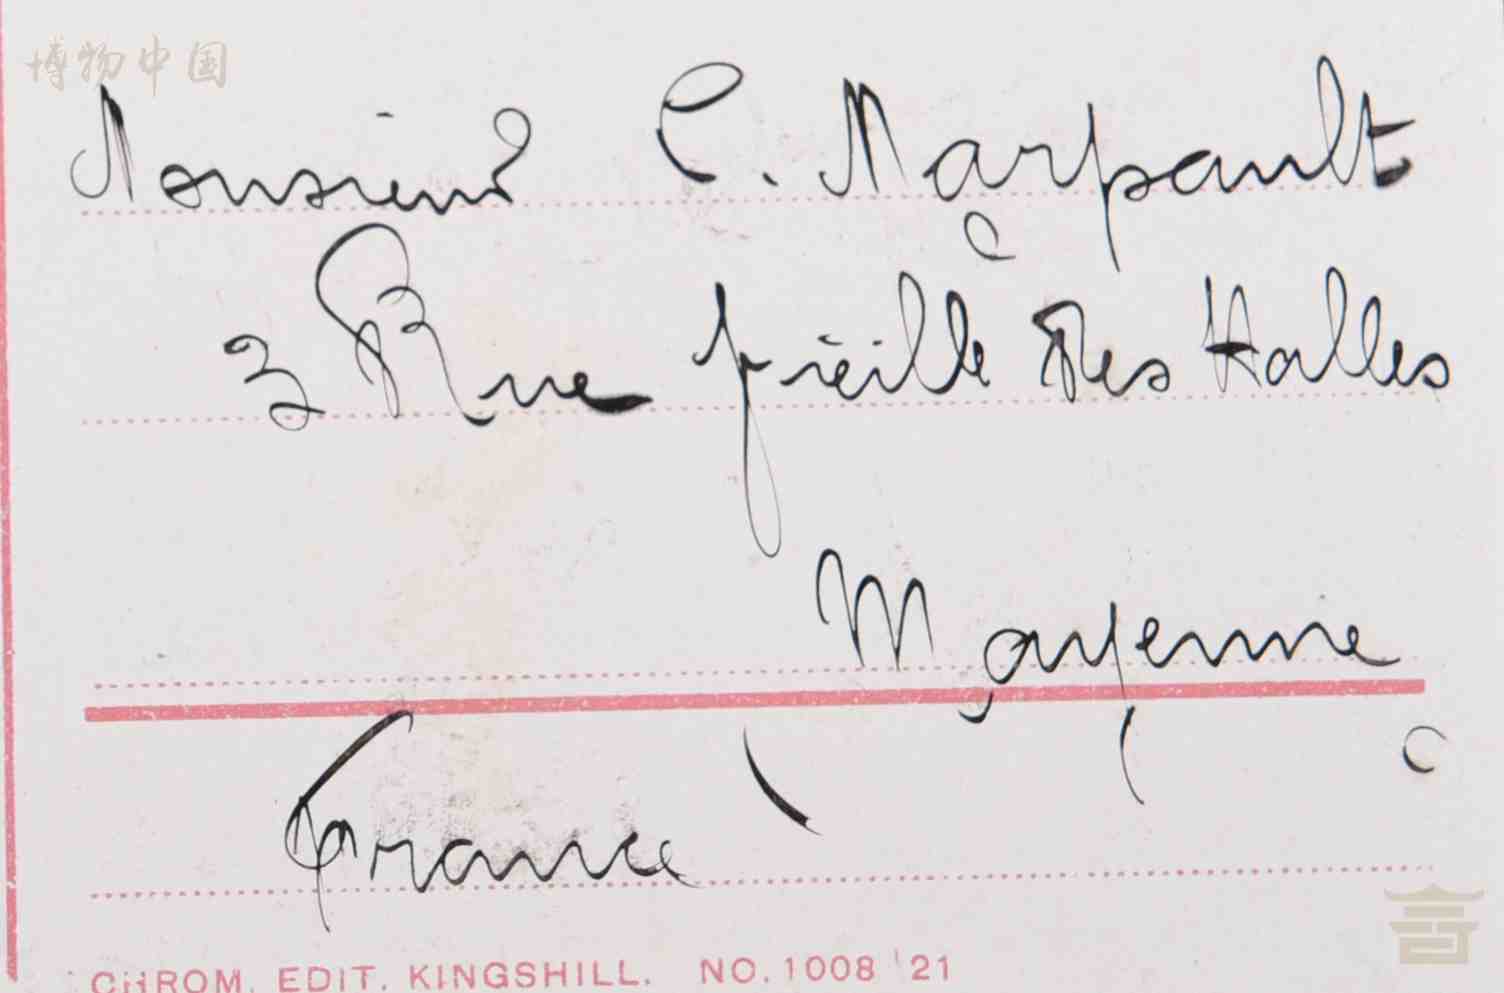 博物中国
Monsieur C. Marpault
3 Rue vieille des Halles
Mayenne
France
CHROM. EDIT. KINGSHILL. NO. 1008 '21